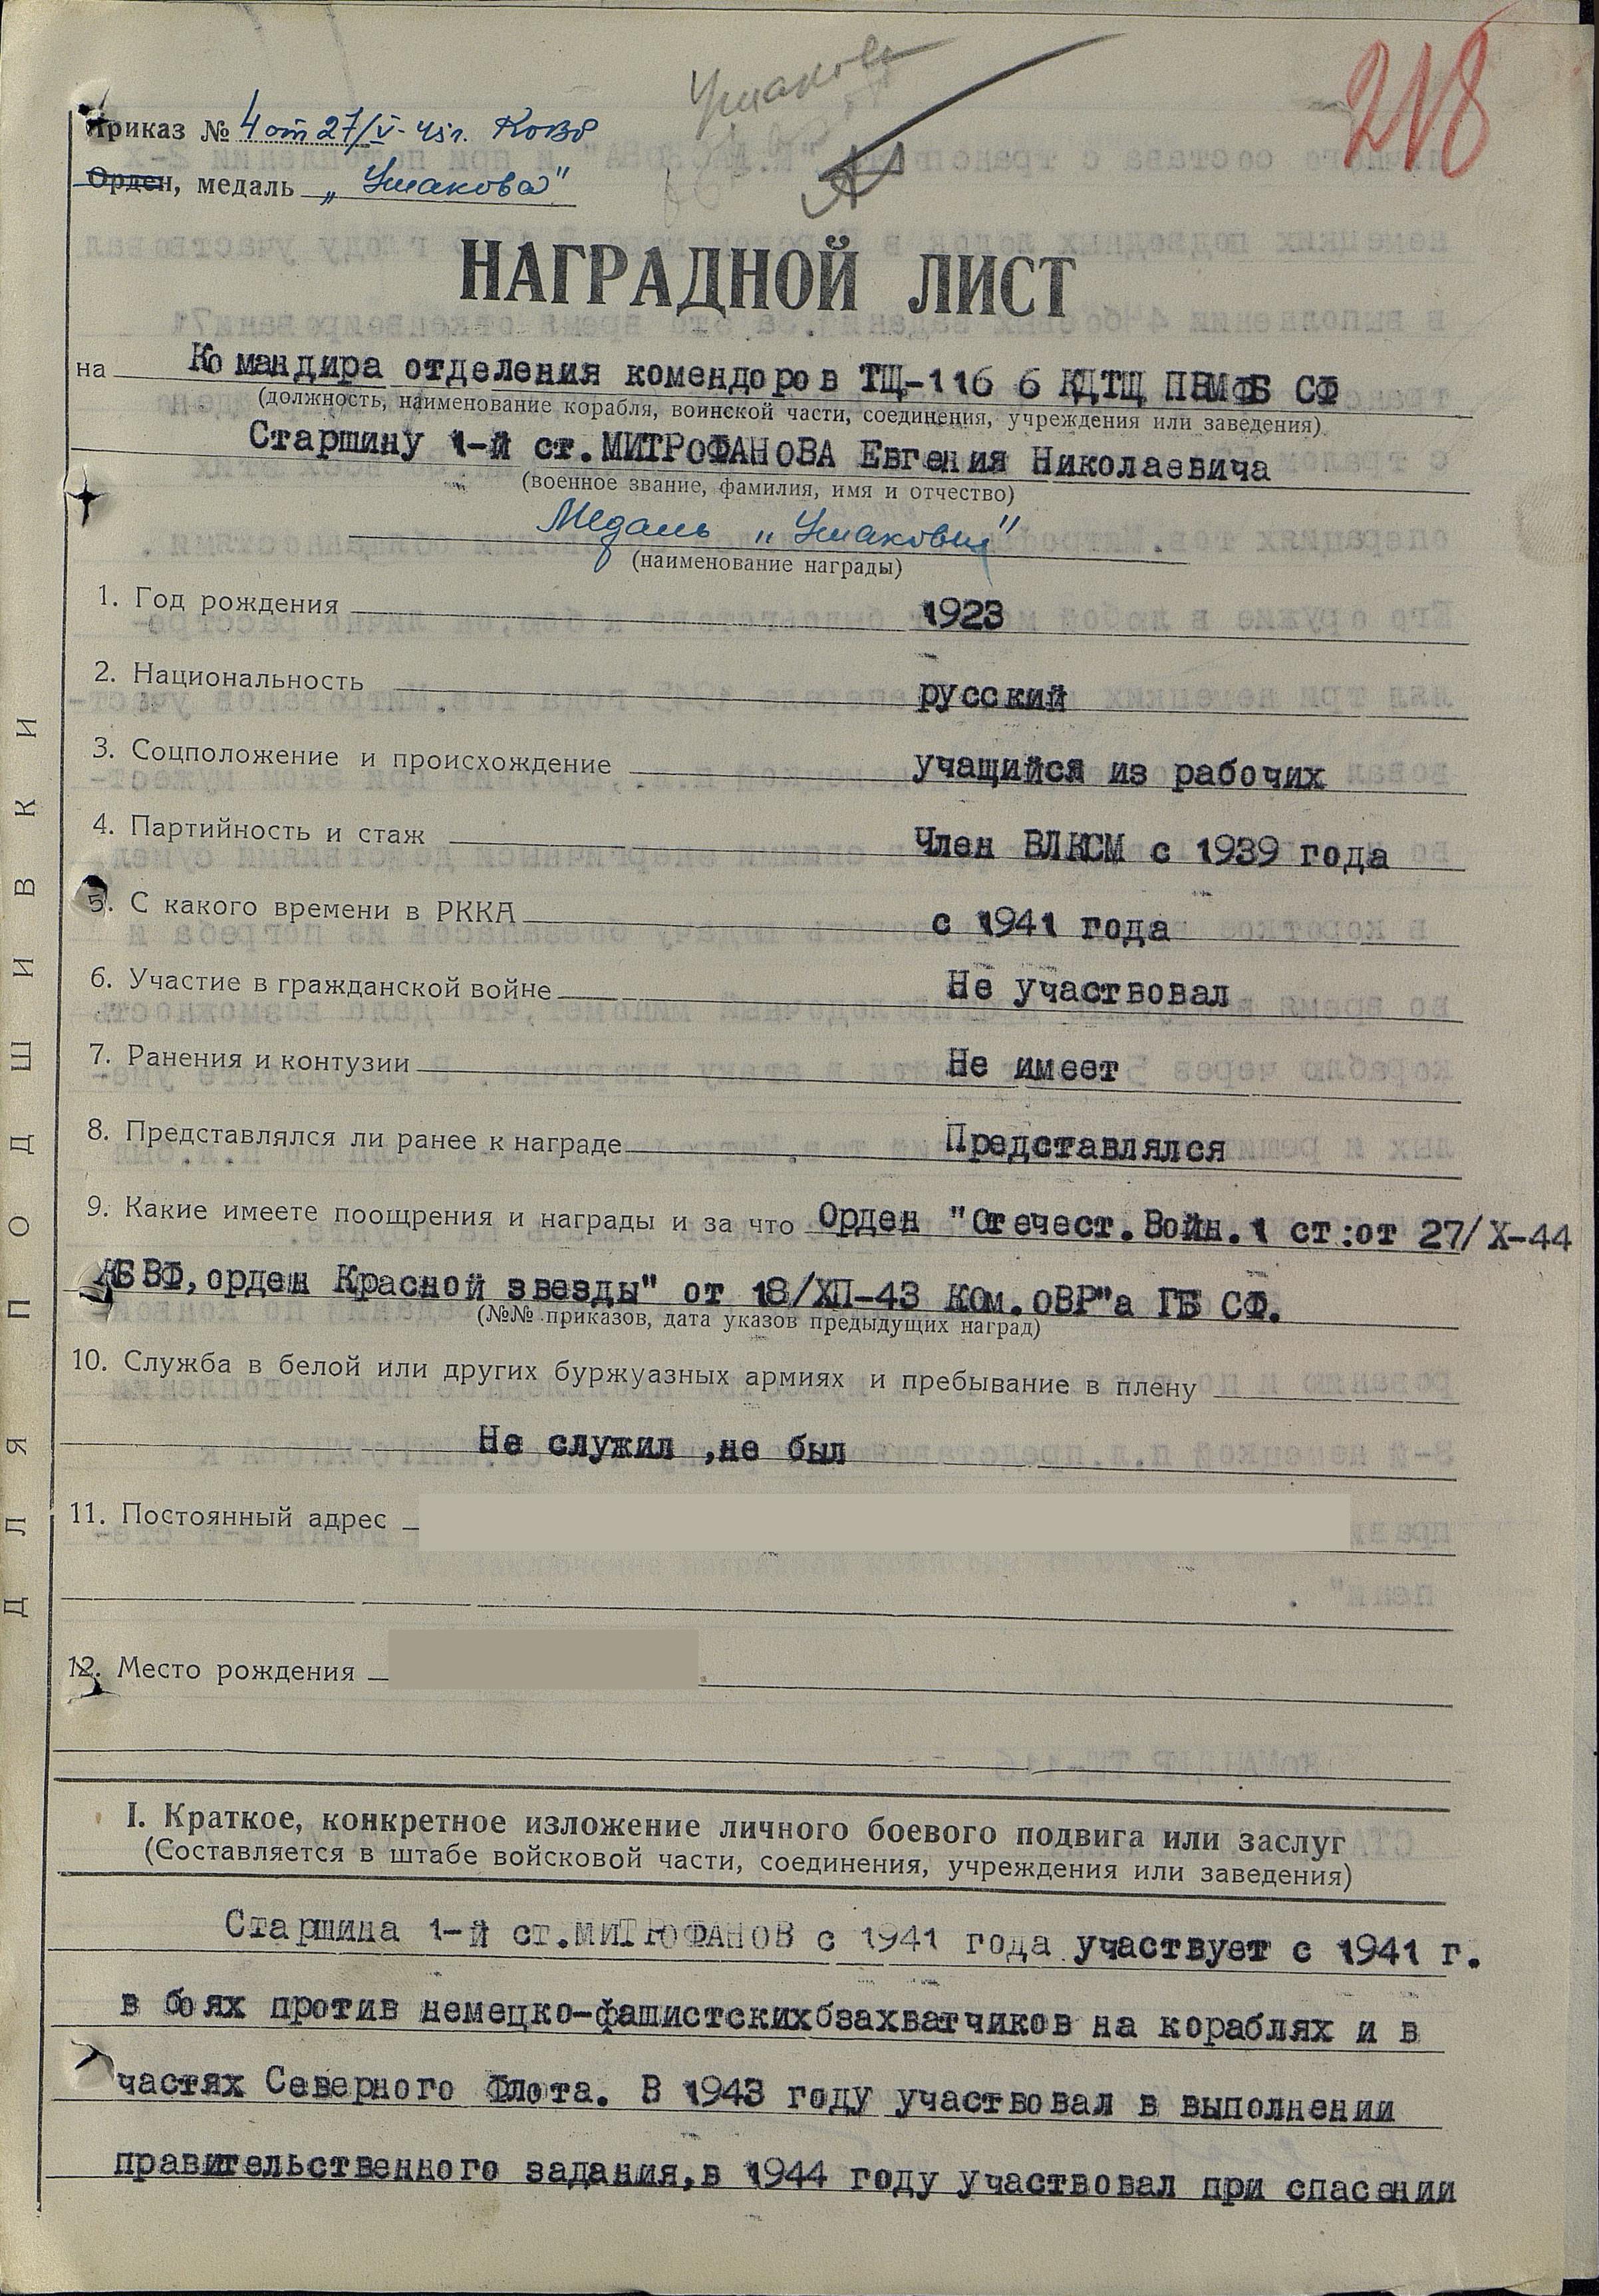 Ушакова
218
Приказ № 4 от 27/V-45г. КОВР
Орден, медаль „Ушакова"
НАГРАДНОЙ ЛИСТ
на Командира отделения комендоров ТЩ-116 6 КДТЩ ПВМФБ СФ
(должность, наименование корабля, воинской части, соединения, учреждения или заведения)
Старшину 1-й ст.МИТРОФАНОВА Евгения Николаевича
(военное звание, фамилия, имя и отчество)
Медаль „Ушакова"
(наименование награды)
1. Год рождения 1923
2. Национальность русский
3. Соцположение и происхождение учащийся из рабочих
4. Партийность и стаж Член ВЛКСМ с 1939 года
5. С какого времени в РККА с 1941 года
6. Участие в гражданской войне Не участвовал
7. Ранения и контузии Не имеет
8. Представлялся ли ранее к награде Представлялся
9. Какие имеете поощрения и награды и за что Орден "Отечест.Войн.1 ст:от 27/X-44
КБВФ,орден Красной звезды" от 18/ХП-43 Ком.ОВР"а ГБ СФ.
(№№ приказов, дата указов предыдущих наград)
10. Служба в белой или других буржуазных армиях и пребывание в плену
Не служил ,не был
11. Постоянный адрес
12. Место рождения
I. Краткое, конкретное изложение личного боевого подвига или заслуг
(Составляется в штабе войсковой части, соединения, учреждения или заведения)
Старшина 1-й ст.МИТРОФАНОВ с 1941 года участвует с 1941 г.
в боях против немецко-фашистскихбзахватчиков на кораблях и в
частях Северного Флота. В 1943 году участвовал в выполнении
правительственного задания,в 1944 году участвовал при спасении
ДЛЯ ПОДШИВКИ